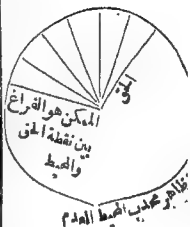 الحق
الممكن هو الفراغ
بين نقطة الحق
والمحيط
ظاهر محدب المحيط العدم